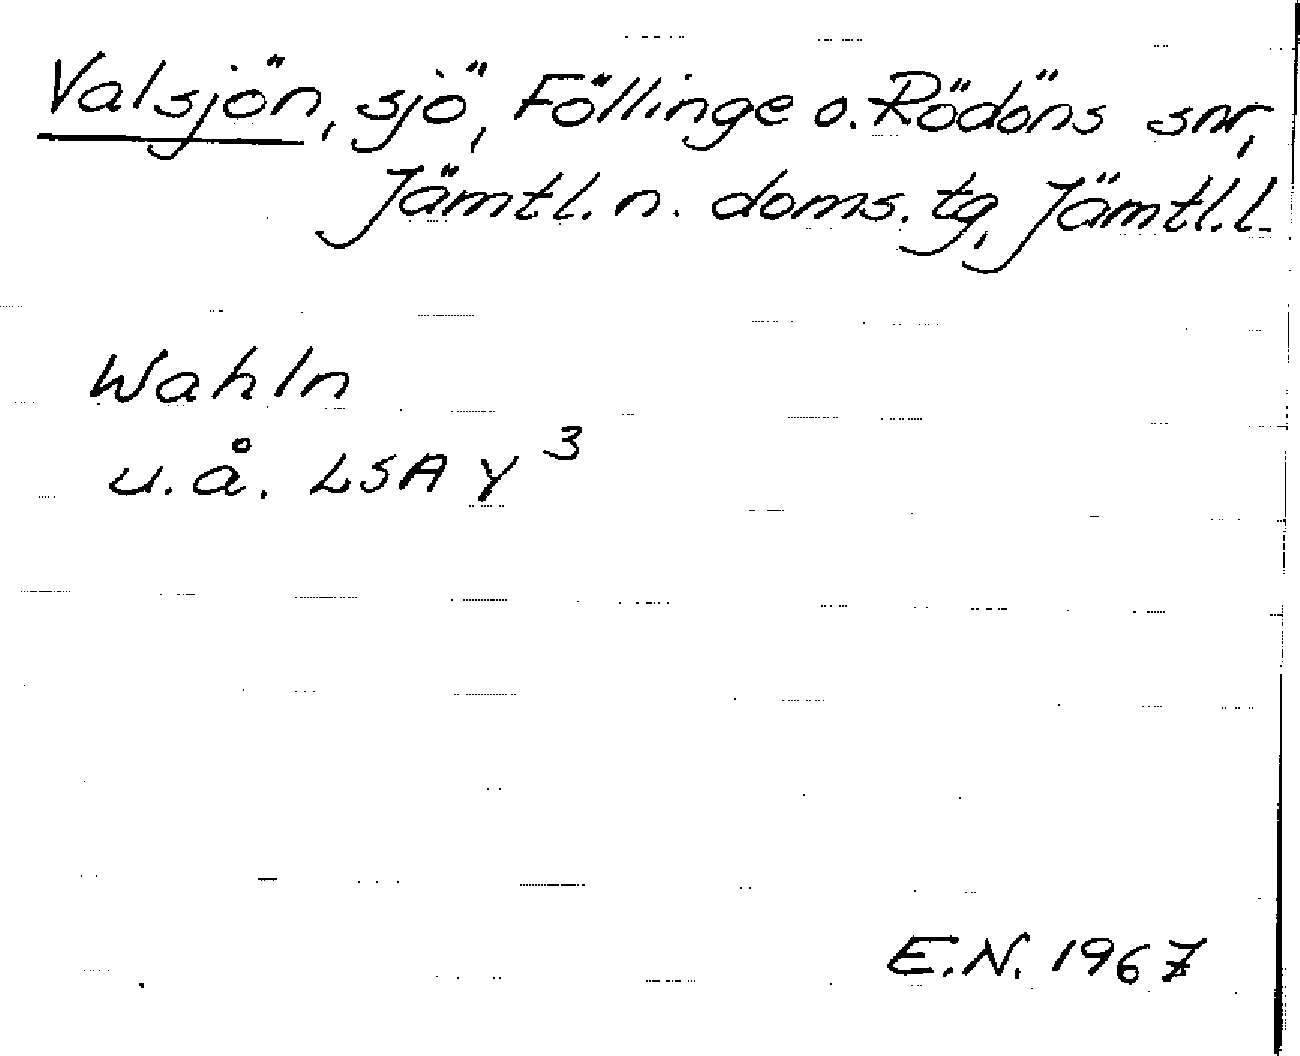 Valsjön, sjö, Föllinge o. Rödöns snr,
Jämtl. n. doms. tg, Jämtl. l.
Wahln
u. å. LSA Y 3
E.N. 1967